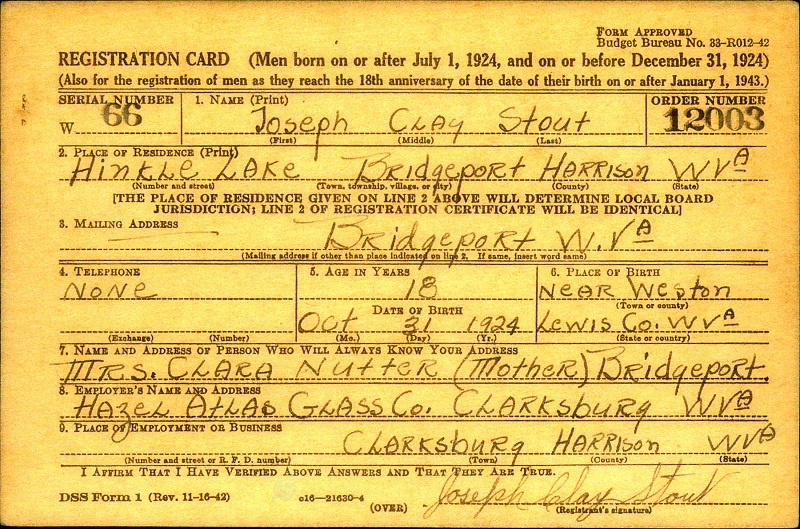 FORM APPROVED
Budget Bureau No. 33-R012-42
REGISTRATION CARD (Men born on or after July 1, 1924, and on or before December 31, 1924)
(Also for the registration of men as they reach the 18th anniversary of the date of their birth on or after January 1, 1943.)
SERIAL NUMBER 1. NAME (Print) ORDER NUMBER
W 66 Joseph CLAY Stout 12003
(First) (Middle) (Last)
2. PLACE OF RESIDENCE (Print)
HINKLE LAKE Bridgeport HARRISON W VA
(Number and street) (Town, township, village, or city) (County) (State)
[THE PLACE OF RESIDENCE GIVEN ON LINE 2 ABOVE WILL DETERMINE LOCAL BOARD
JURISDICTION; LINE 2 OF REGISTRATION CERTIFICATE WILL BE IDENTICAL]
3. MAILING ADDRESS
Bridgeport W. VA
(Mailing address if other than place indicated on line 2. If same, insert word same)
4. TELEPHONE 5. AGE IN YEARS 6. PLACE OF BIRTH
NONE 18 NEAR Weston
(Town or county)
DATE OF BIRTH
Oct 31 1924 Lewis Co. W VA
(Exchange) (Number) (Mo.) (Day) (Yr.) (State or country)
7. NAME AND ADDRESS OF PERSON WHO WILL ALWAYS KNOW YOUR ADDRESS
MRS. CLARA Nutter (Mother) Bridgeport.
8. EMPLOYER'S NAME AND ADDRESS
HAZEL ATLAS GLASS Co. CLARKSBURG W VA
9. PLACE OF EMPLOYMENT OR BUSINESS
CLARKSBURG HARRISON W VA
(Number and street or R. F. D. number) (Town) (County) (State)
I AFFIRM THAT I HAVE VERIFIED ABOVE ANSWERS AND THAT THEY ARE TRUE.
DSS Form 1 (Rev. 11-16-42) c16—21630-4 Joseph Clay Stout
(OVER) (Registrant's signature)